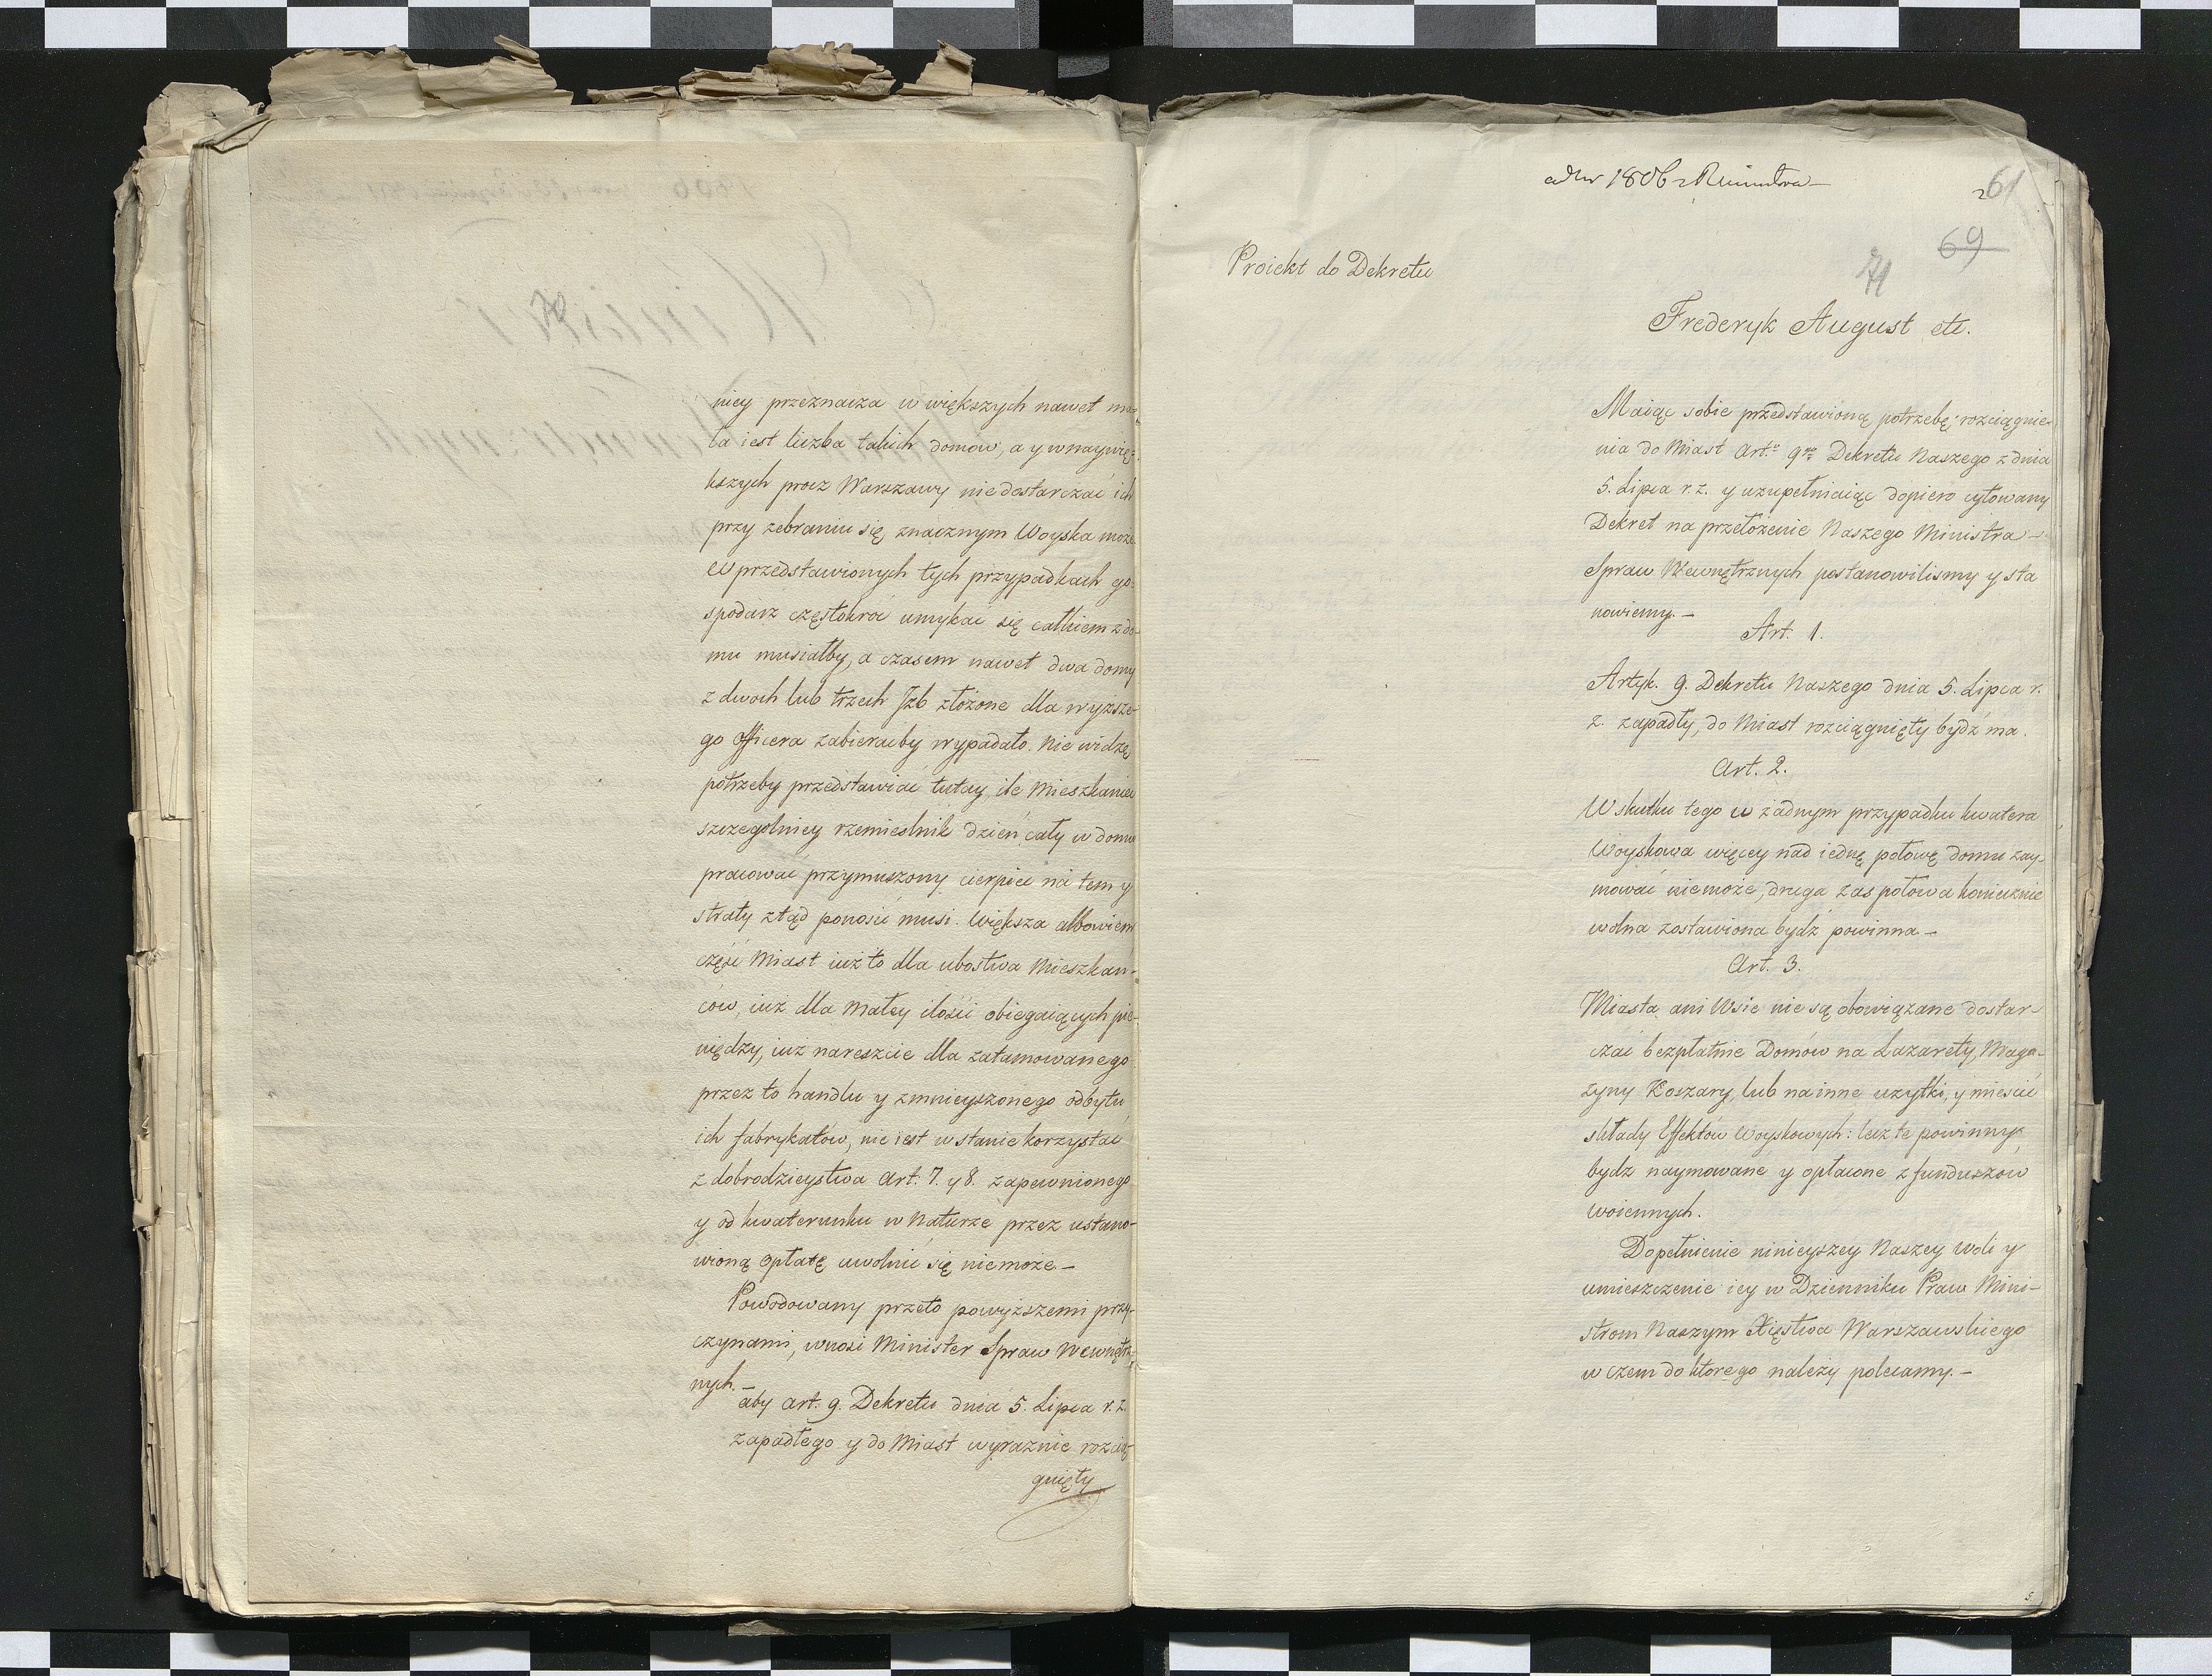 70
nicy przeznacza w większych nawet ma-
ła iest liczba takich domow, a y w naywię-
kszych procz Warszawy niedostarczać ich
przy zebraniu się znacznym Woyska może.
W przedstawionych tych przypadkach go-
spodarz częstokroć umykać się całkiem z do-
mu musiałby, a czasem nawet dwa domy
z dwoch lub trzech Jzb złożone dla wyższe-
go Officera zabieraćby wypadało. Nie widzę
potrzeby przedstawiać tutay, ile Mieszkaniec
szczegolniey rzemieslnik dzień cały w domu
pracować przymuszony cierpieć na tem y
straty ztąd ponosić musi. Większa albowiem
część Miast iuż to dla ubostwa Mieszkan-
ców, iuż dla małey ilości obiegaiących pie-
niędzy, iuż nareszcie dla zatamowanego
przez to handlu y zmnieyszonego odbytu
ich fabrykatów, nie iest w stanie korzystać
z dobrodzieystwa Art. 7. y 8. zapewnionego
y od kwaterunku w Naturze przez ustano-
wioną opłatę uwolnić się niemoże.—
Powodowany przeto powyższemi przy-
czynami, wnosi Minister Spraw Wewnętrz-
nych.—
aby art. 9. Dekretu dnia 5. Lipca r. z.
zapadłego y do Miast wyraznie rozcią-
gnięty
1806
61
69
71
Proiekt do Dekretu
Frederyk August etc.
Maiąc sobie przedstawioną potrzebę rozciągnie-
nia do Miast Art.º 9go Dekretu Naszego z dnia
5. Lipca r. z. y uzupełniaiąc dopiero cytowany
Dekret na przełożenie Naszego Ministra—
Spraw Wewnętrznych postanowilismy y sta
nowiemy.—
Art. 1.
Artyk. 9. Dekretu Naszego dnia 5. Lipca r.
z. zapadły, do Miast rozciągnięty bydź ma.
Art. 2.
W skutku tego w żadnym przypadku kwatera
Woyskowa więcey nad iednę połowę domu zay-
mować niemoże, druga zas połowa koniecznie
wolna zostawiona bydź powinna—
Art. 3.
Miasta ani Wsie nie są obowiązane dostar-
czać bezpłatnie Domów na Lazarety, Maga-
zyny Koszary, lub na inne uzytki, y miescić
składy Effektów Woyskowych: lecz te powinny
bydz naymowane y opłacone z funduszow
woiennych.
Dopełnienie ninieyszey Naszey woli y
umieszczenie iey w Dzienniku Praw Mini-
strom Naszym Xięstwa Warszawskiego
w czem do ktorego należy polecamy.—